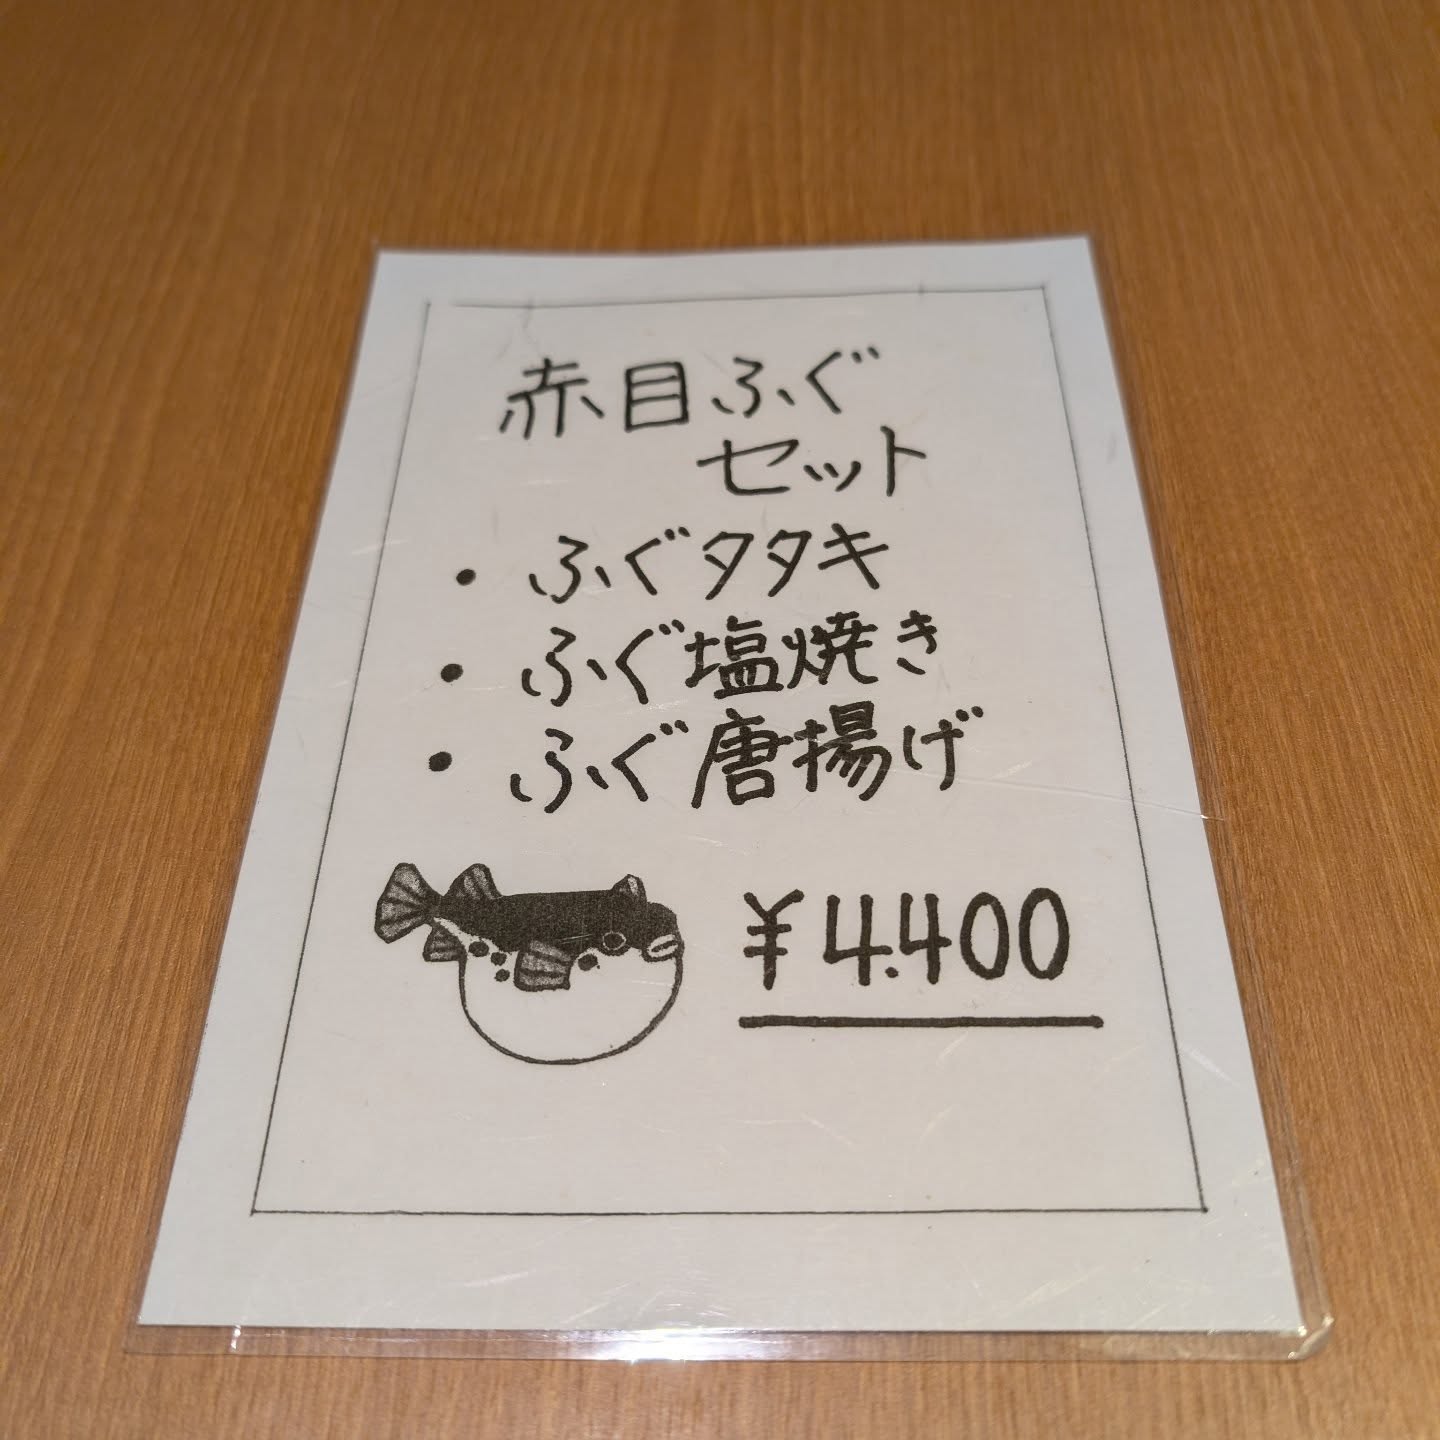 赤目ふぐ
セット
・ふぐタタキ
・ふぐ塩焼き
・ふぐ唐揚げ
¥4.400